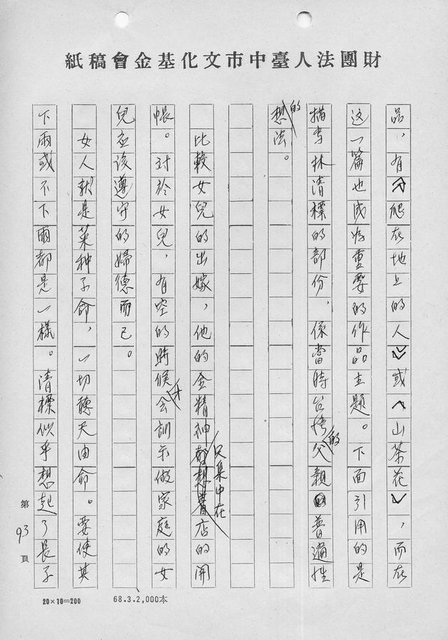 財團法人臺中市文化基金會稿紙
品，有︿爬在地上的人﹀或︿山茶花﹀，而在
這一篇也成為重要的作品主題。下面引用的是
描寫林清標的部份，係當時台灣父親的普遍性
的想法。
比較女兒的出嫁，他的全精神只集中在店的開
帳。對於女兒，有空的時候才會訓示做家庭的女
兒應該遵守的婦德而已。
女人就是菜种子命，一切聽天由命。要使其
下雨或不下雨都是一樣。清標似乎想起了長子
第93頁
20×10=200
68.3.2,000本